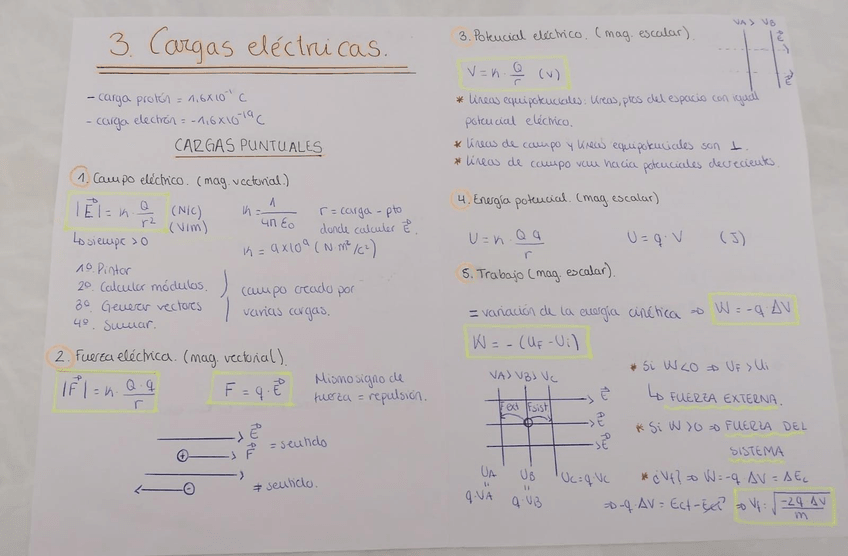 3. Cargas eléctricas.
- carga protón = 1,6x10⁻¹ C
- carga electrón = -1,6x10⁻¹⁹ C
CARGAS PUNTUALES
1. Campo eléctrico. (mag. vectorial.)
|E⃗| = K · Q/r² (N/C) (V/m)
K = 1/4πε₀
r = carga - pto donde calcular E⃗.
↳ siempre > 0
K = 9x10⁹ (N·m²/C²)
1º. Pintar
2º. Calcular módulos.
3º. Generar vectores
4º. Sumar.
campo creado por
varias cargas.
2. Fuerza eléctrica. (mag. vectorial).
|F⃗| = K · Q·q/r
F = q·E⃗
Mismo signo de
fuerza = repulsión.
E⃗
⊕ F⃗
= sentido
⊖
≠ sentido.
3. Potencial eléctrico. (mag. escalar).
V = K · Q/r (V)
VA > VB
E⃗
E⃗
* líneas equipotenciales: líneas, ptos del espacio con igual
potencial eléctrico.
* líneas de campo y líneas equipotenciales son ⊥.
* líneas de campo van hacia potenciales decreciente.
4. Energía potencial. (mag escalar)
U = K · Q q/r
U = q · V (J)
5. Trabajo (mag. escalar).
= variación de la energía cinética ⇒ W = -q ΔV
W = - (UF - Ui)
VA > VB > VC
Fext Fsist E⃗
E⃗
E⃗
UA UB UC = q·VC
= =
q·VA q·VB
* Si W<0 ⇒ UF > Ui
↳ FUERZA EXTERNA.
* Si W>0 ⇒ FUERZA DEL
SISTEMA
* ¿Vf? ⇒ W = -q ΔV = ΔEc
⇒ -q ΔV = Ecf - Eci ⇒ Vf = √(-2q ΔV/m)